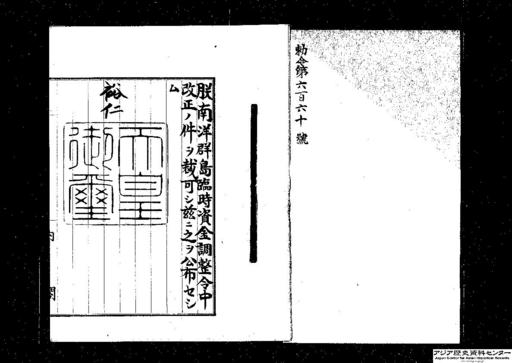 勅令第六百六十號
朕南洋群島臨時資金調整令中
改正ノ件ヲ裁可シ茲ニ之ヲ公布セシ
ム
裕仁
天皇
御璽
内閣
アジア歴史資料センター
Japan Center for Asian Historical Records